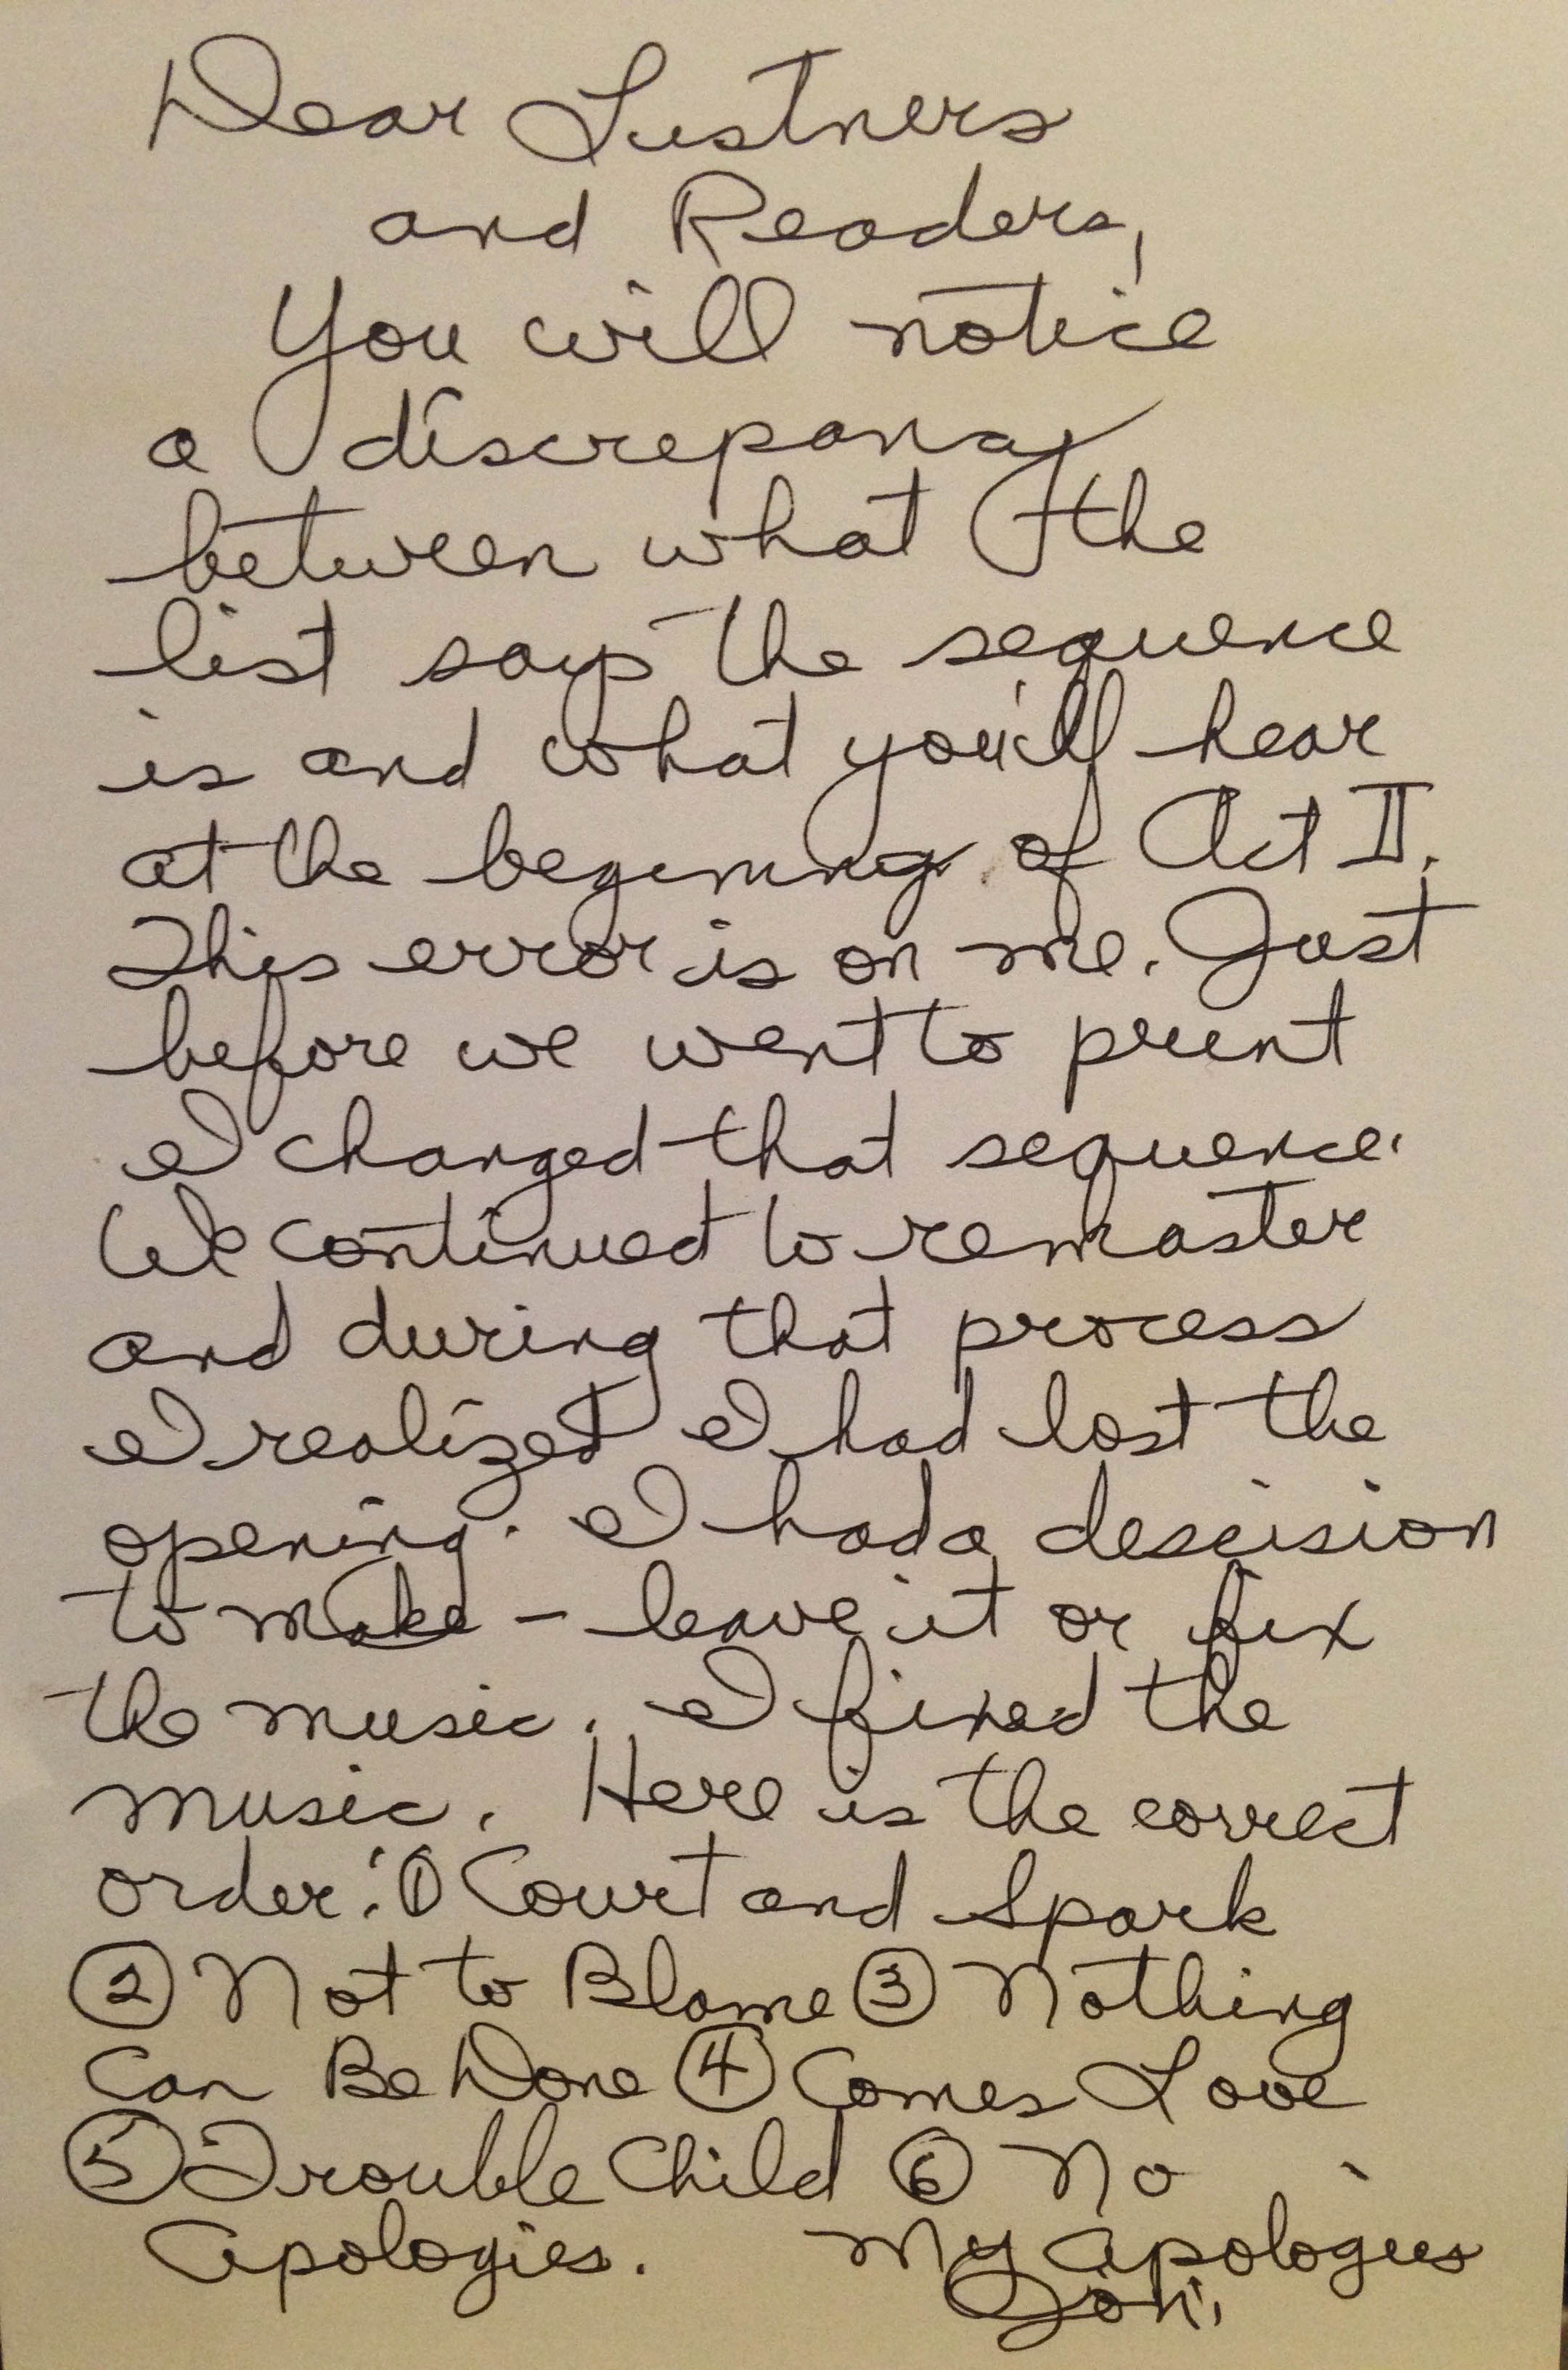 Dear Listners
and Readers,
You will notice
a discrepancy
between what the
list says the sequence
is and what you'll hear
at the beginning of Act II.
This error is on me. Just
before we went to print
I changed that sequence.
We continued to remaster
and during that process
I realized I had lost the
opening. I had a descision
to make – leave it or fix
the music. I fixed the
music. Here is the correct
order: ① Court and Spark
② Not to Blame ③ Nothing
Can Be Done ④ Comes Love
⑤ Trouble Child ⑥ No
Apologies. My apologies
Joni